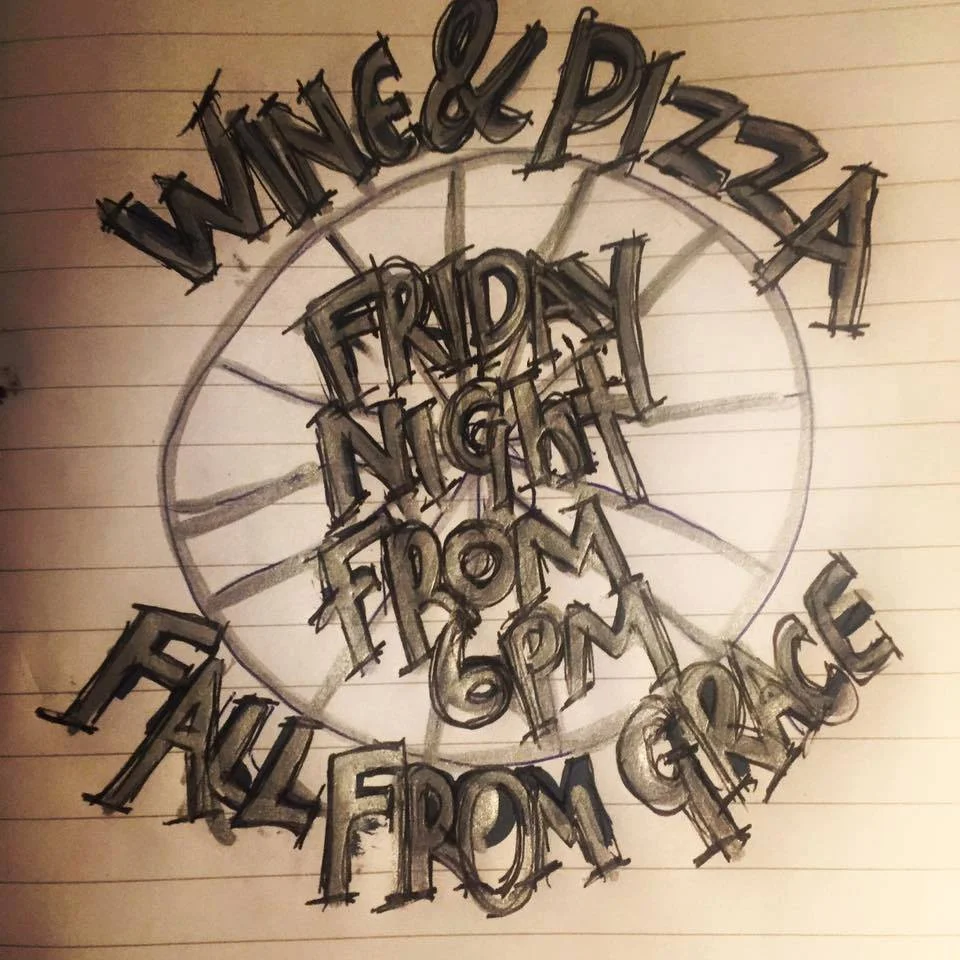 WINE & PIZZA
FRIDAY
NIGht
FROM
6PM
FALL FROM GRACE